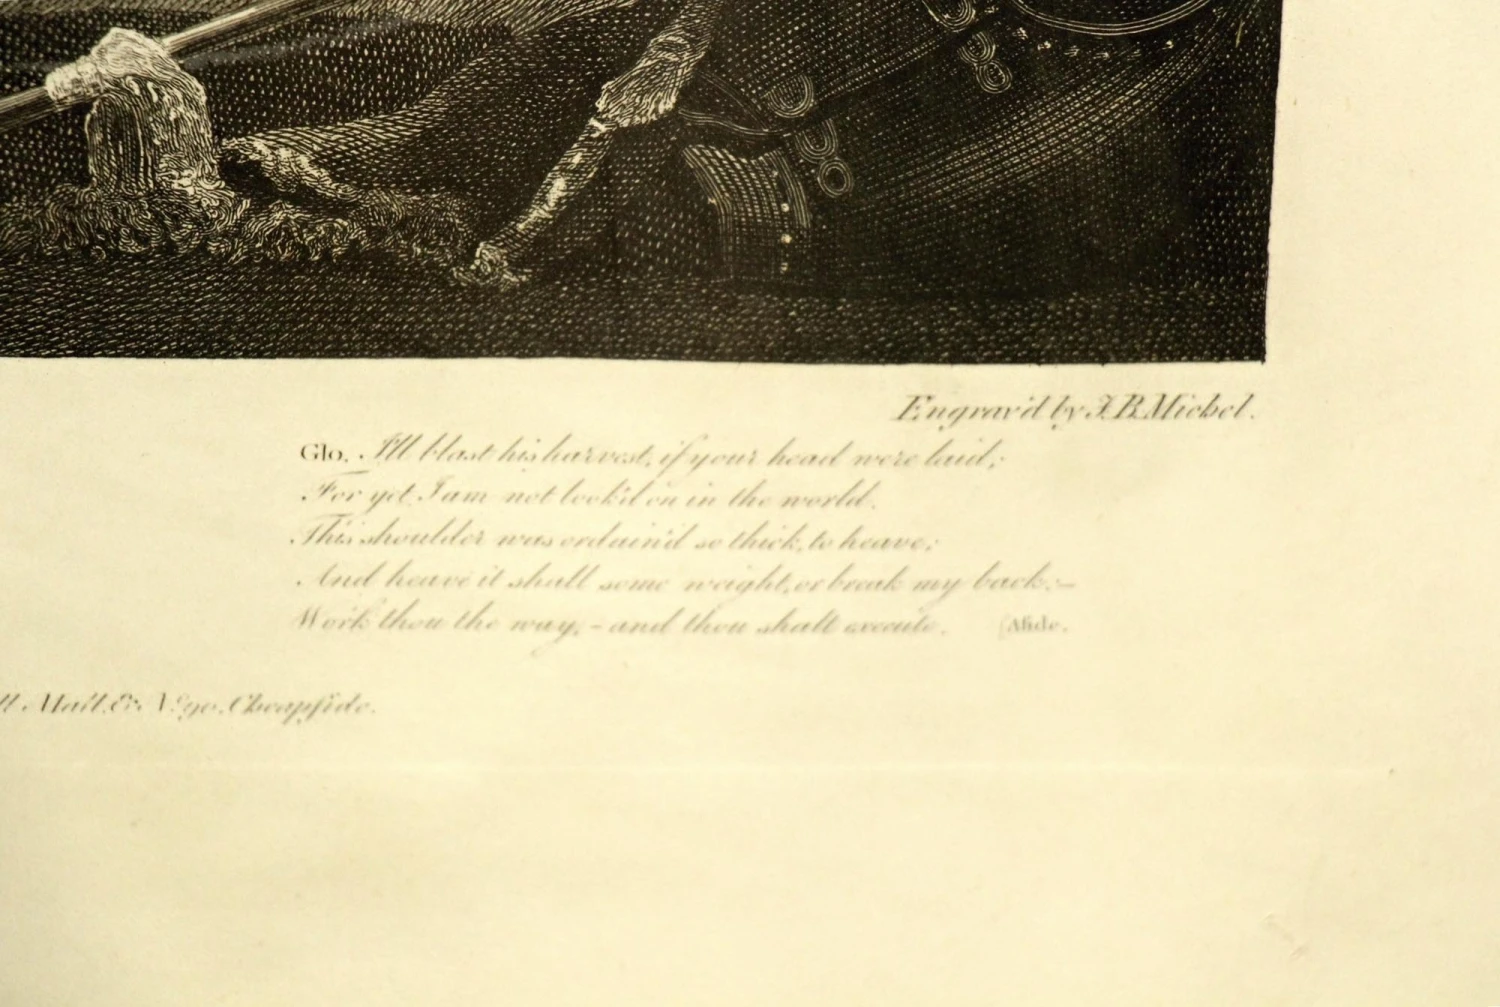 Engrav'd by J.B. Michel.
Glo. I'll blast his harvest, if your head were laid;
For yet I am not look'd on in the world.
This shoulder was ordain'd so thick, to heave;
And heave it shall some weight, or break my back:—
Work thou the way, – and thou shalt execute. (Aside.
ll Mall, & No. 90, Cheapside.